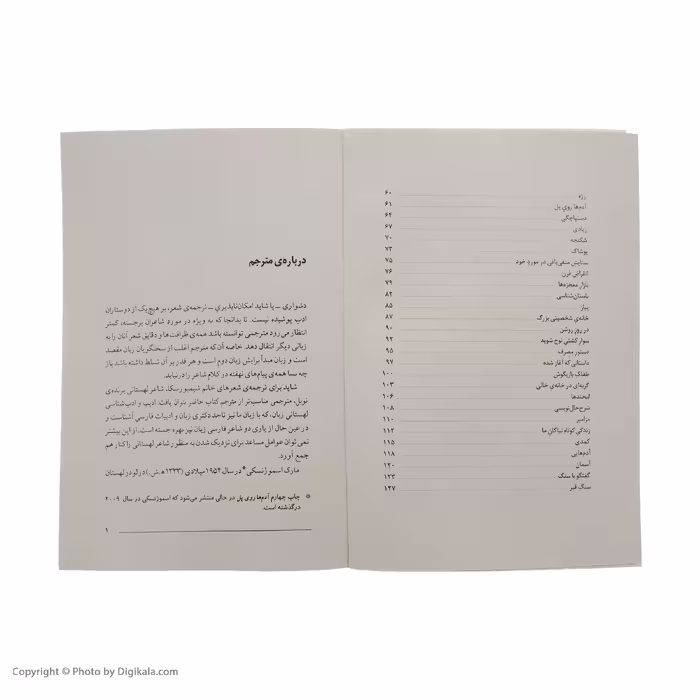 رژه ۶۰
آدم‌ها روی پل ۶۱
دستپاچگی ۶۴
زیادی ۶۷
شکنجه ۷۰
پوشاک ۷۳
ستایش منفی‌بافی در مورد خود ۷۵
انقراض قرن ۷۶
بازار معجزه‌ها ۷۹
باستان‌شناسی ۸۲
پیاز ۸۵
خانه‌ی شخصیتی بزرگ ۸۷
در روز روشن ۹۰
سوار کشتی نوح شوید ۹۲
دستور مصرف ۹۵
داستانی که آغاز شده ۹۷
طفلک بازیگوش ۱۰۰
گربه‌ای در خانه‌ی خالی ۱۰۳
لبخندها ۱۰۶
شرح‌حال‌نویسی ۱۰۸
مزامیر ۱۱۰
زندگی کوتاه نیاکان ما ۱۱۲
کمدی ۱۱۵
آدم‌هایی ۱۱۸
آسمان ۱۲۰
گفتگو با سنگ ۱۲۳
سنگ قبر ۱۲۷
درباره‌ی مترجم
دشواری ــ یا شاید امکان‌ناپذیری ــ ترجمه‌ی شعر، بر هیچ یک از دوستاران
ادب پوشیده نیست. تا بدانجا که به ویژه در مورد شاعران برجسته، کمتر
انتظار می‌رود مترجمی توانسته باشد همه‌ی ظرافت‌ها و دقایق شعر آنان را به
زبانی دیگر انتقال دهد. خاصه آن‌که مترجم اغلب از سخنگویان زبان مقصد
است و زبان مبدأ برایش زبان دوم است و هر قدر بر آن تسلط داشته باشد باز
چه بسا همه‌ی پیام‌های نهفته در کلام شاعر را درنیابد.
شاید برای ترجمه‌ی شعرهای خانم شیمبورسکا، شاعر لهستانی برنده‌ی
نوبل، مترجمی مناسب‌تر از مترجم کتاب حاضر نتوان یافت. ادیب و ادب‌شناسی
لهستانی زبان، که با زبان ما نیز تا حد دکتری زبان و ادبیات فارسی آشناست و
در عین حال از یاری دو شاعر فارسی زبان نیز بهره جسته است. از این بیشتر
نمی‌توان عوامل مساعد برای نزدیک شدن به منظور شاعر لهستانی را کنار هم
جمع آورد.
مارک اسموژنسکی* در سال ۱۹۵۴ میلادی (۱۳۳۳ ه‍.ش.) در لودز لهستان
* چاپ چهارم آدم‌ها روی پل در حالی منتشر می‌شود که اسموژنسکی در سال ۲۰۰۹
درگذشته است.
۱
Copyright © Photo by Digikala.com